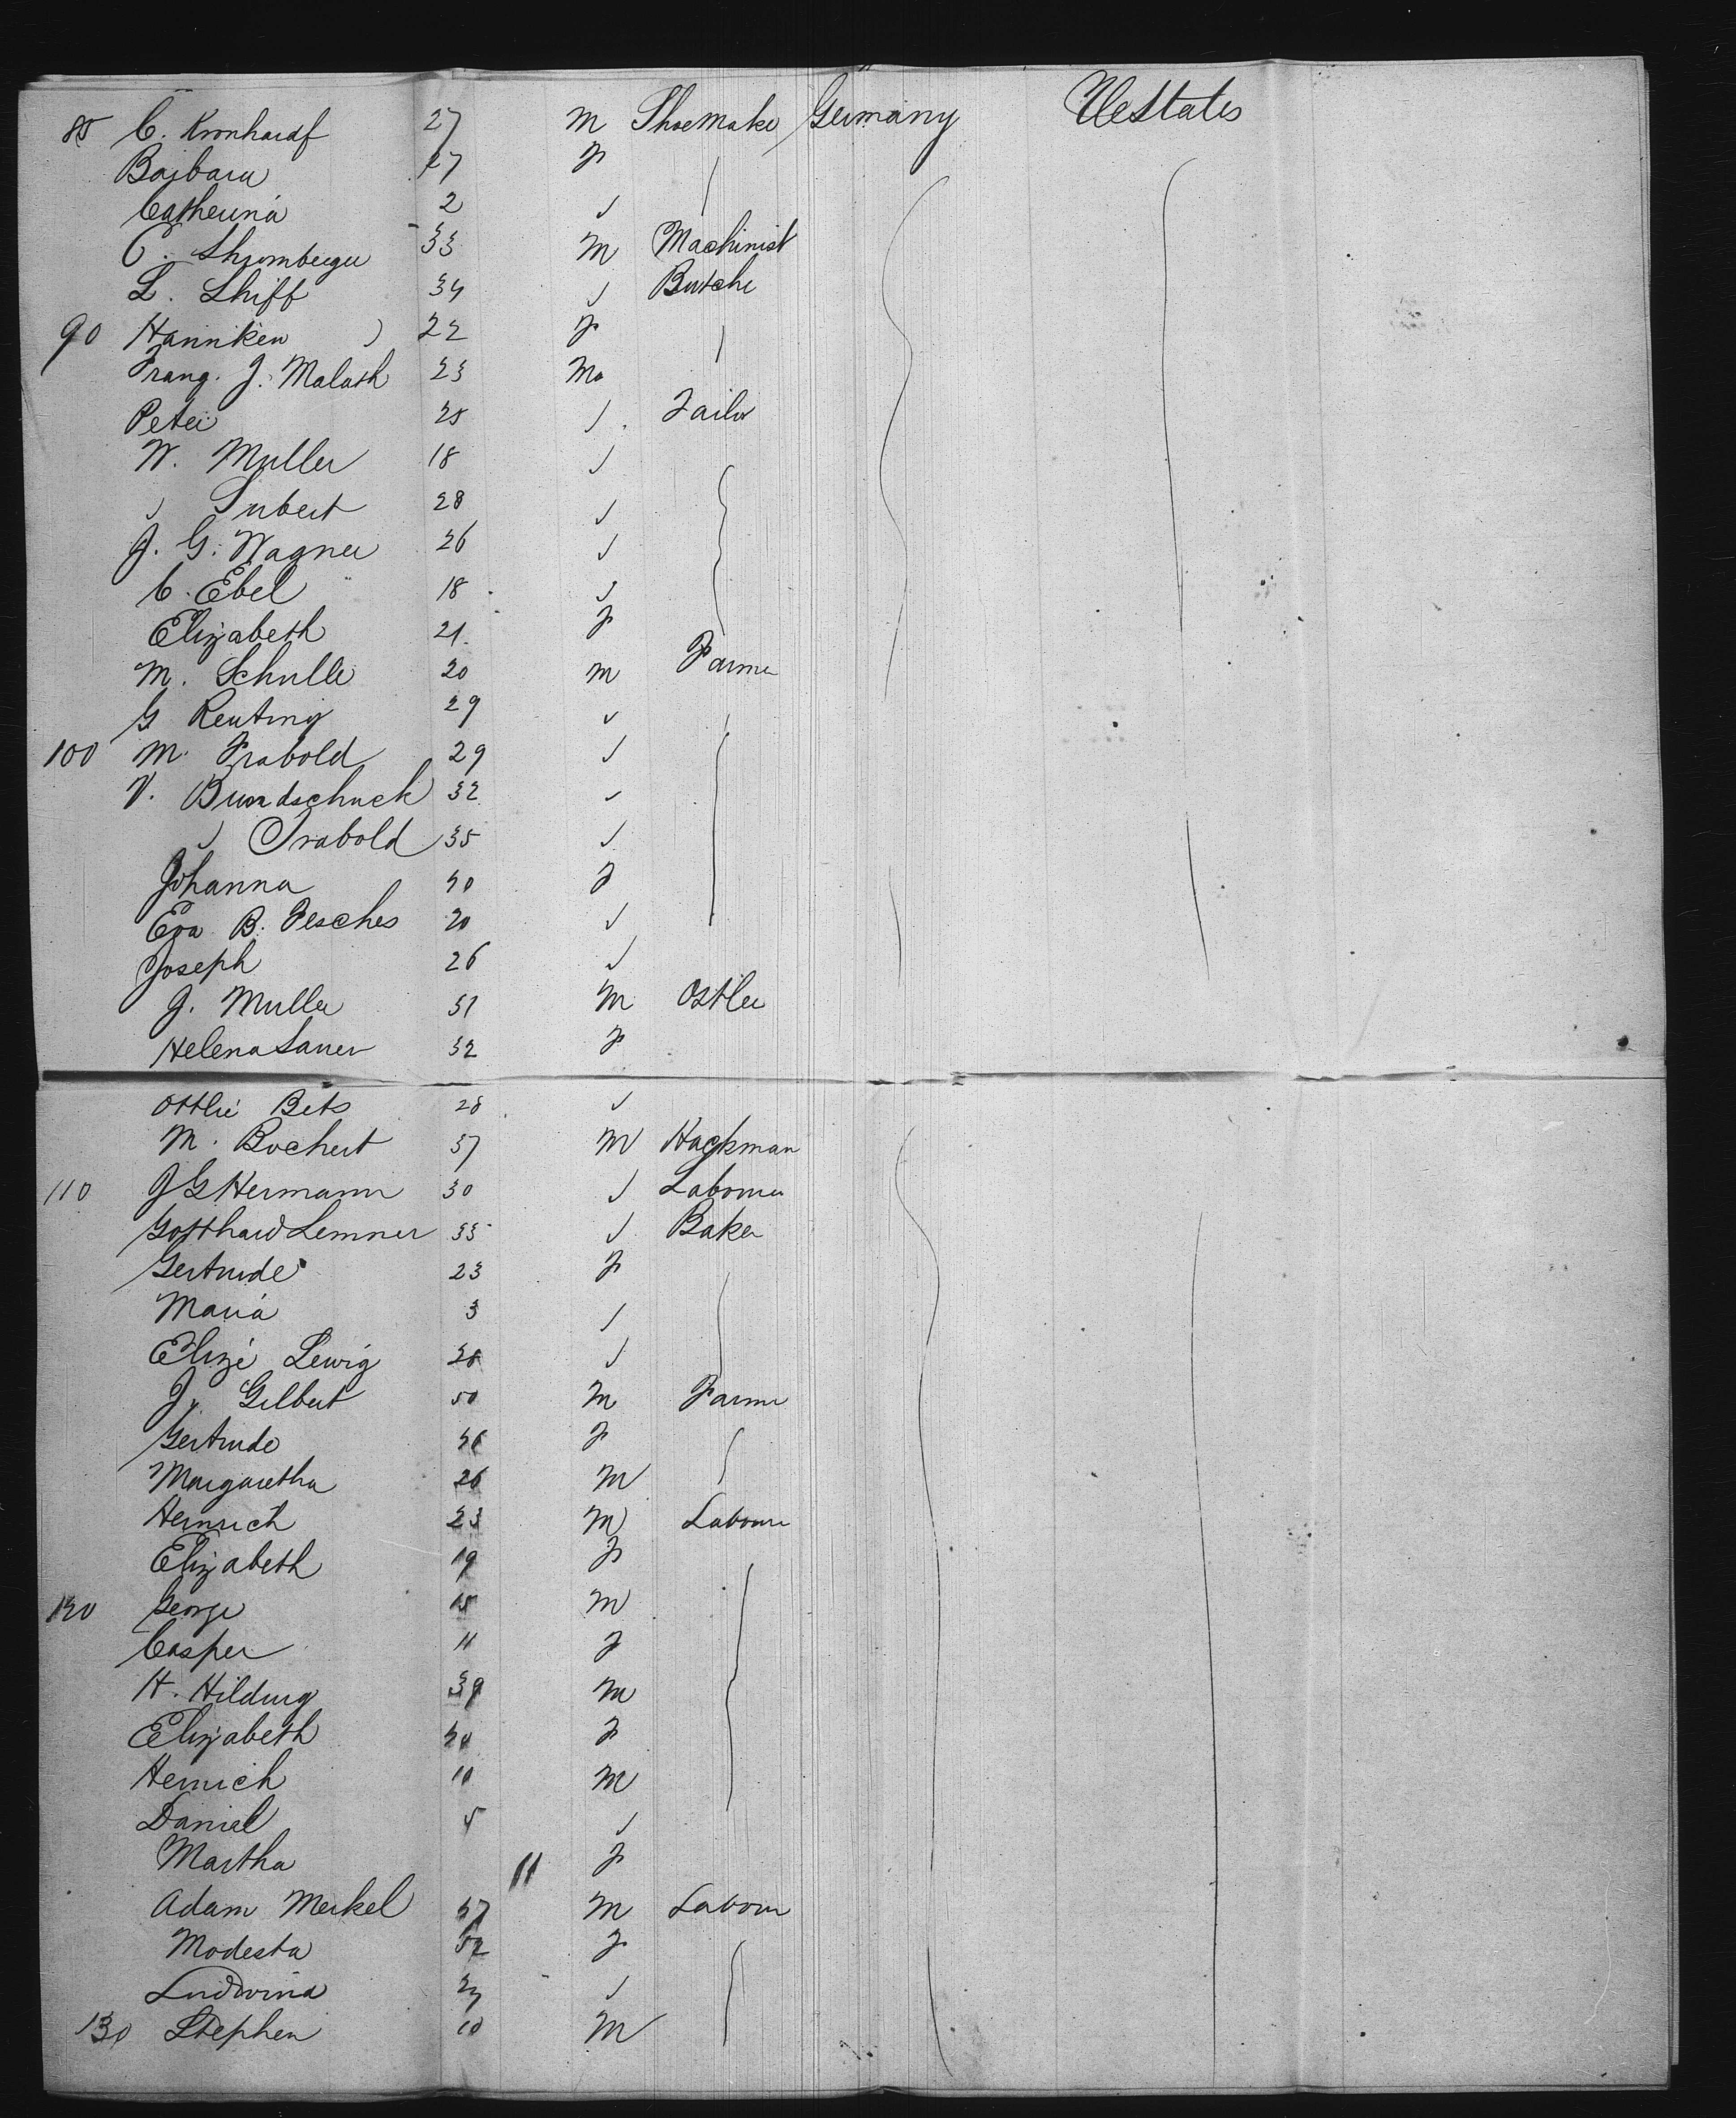 85 C. Kronhardf 27 M Shoemake Germany UeStates
Barbara 27 F
Catherina 2 "
C. Shromberger 33 M Machinist
L. Shiff 34 " Butche
90 Hanniken " 22 F
Frang. J. Malath 23 Mo
Peter 25 " Tailor
W. Muller 18 "
" Subert 28 "
J. G. Wagner 26 "
C. Ebel 18 "
Elizabeth 21 F
M. Schulle 20 M Farme
G Reuting 29 "
100 M. Frabold 29 "
V. Bundschuck 32 "
" Frabold 35 "
Johanna 30 F
Eva B. Pesches 20 "
Joseph 26 "
J. Muller 31 M Ostler
Helena Sauer 32 F
Ottlie Bets 28 "
M. Bochert 37 M Hackman
110 J G Hermann 30 " Labourer
Gotthard Lemner 33 " Baker
Gertrude 23 F
Maria 3 "
Elize Lewig 28 "
J. Gilbert 50 M Farme
Gertrude 46 F
Margaretha 26 M
Heinrich 23 M Laboure
Elizabeth 19 F
120 George 15 M
Casper 11 F
H. Hilding 39 M
Elizabeth F
Heinrich 10 M
Daniel 5 "
Martha 11 F
Adam Merkel 57 M Labour
Modesta 52 F
Ludwina "
130 Stephen 10 M